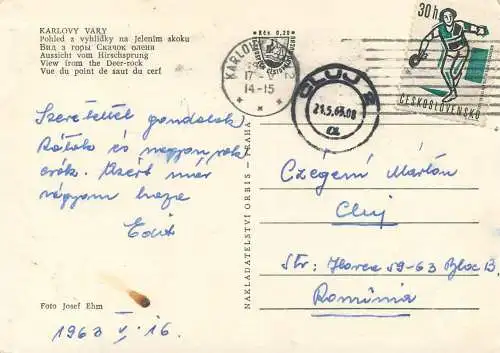 KARLOVY VARY
Pohled z vyhlídky na Jelením skoku
Вид з горы Скачок оленя
Aussicht vom Hirschsprung
View from the Deer-rock
Vue du point de saut du cerf
KARLOVY 2
17-V
14-15
Kčs 0,20
CLUJ 2
21.5.63.08
a
30h
ČESKOSLOVENSKO
Szeretettel gondolok
Rátok és nagyon
csók. Azért már
vágyom haza
Edit
NAKLADATELSTVÍ ORBIS - PRAHA
Czégeni Márton
Cluj
Str: Horea 59-63 Bloc B.
România
Foto Josef Ehm
1963 V. 16.